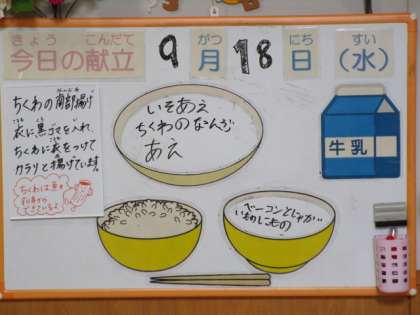 きょう こんだて
今日の献立
9月18日(水)
がつ にち すい
ちくわの南部揚げ
衣に黒ゴマを入れ、
ちくわに衣をつけて
カラリと揚げています。
ちくわは魚の
すり身から
できているよ
いそあえ
ちくわのなんぶ
あえ
牛乳
ベーコンとじゃが
いものにもの